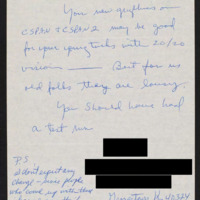 Your new graphics on
CSPAN & CSPAN 2 may be good
for your young turks with 20/20
vision — But for us
old folks they are lousy.
You should have had
a test us
P.S
I don't expect any
change - some people
who work up with these